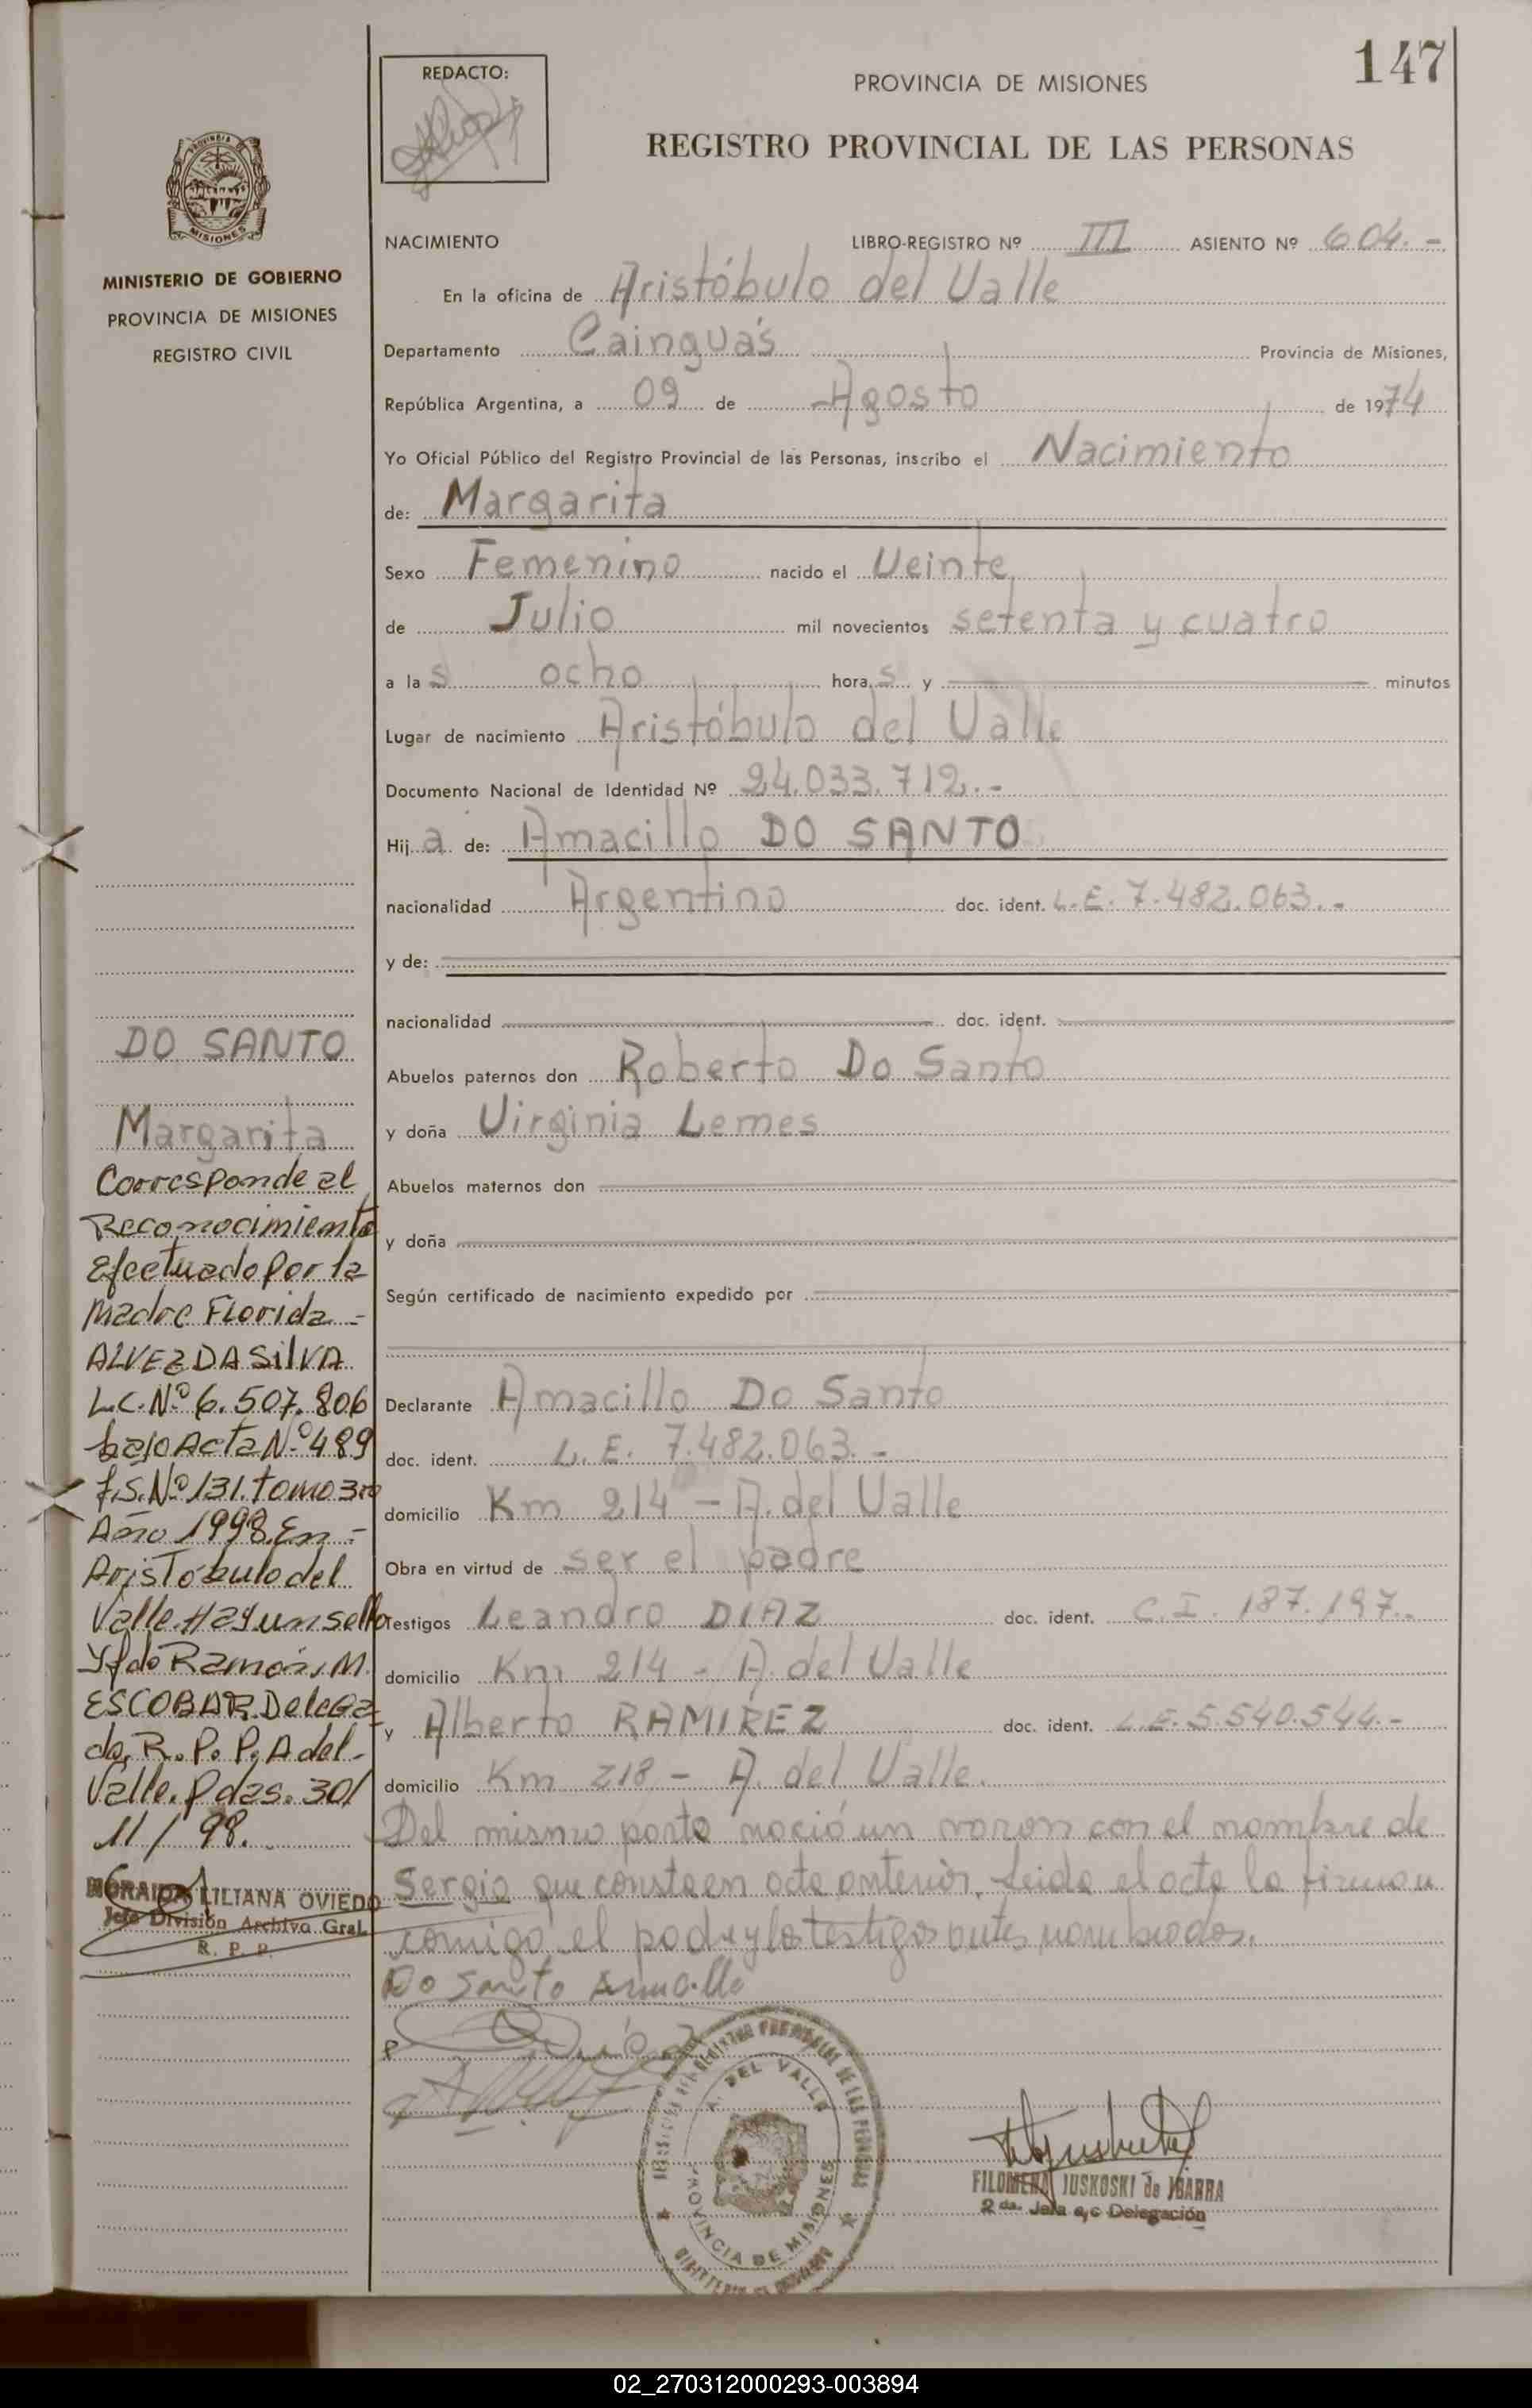 147
REDACTO:
PROVINCIA DE MISIONES
REGISTRO PROVINCIAL DE LAS PERSONAS
MISIONES
MINISTERIO DE GOBIERNO
PROVINCIA DE MISIONES
REGISTRO CIVIL
NACIMIENTO LIBRO-REGISTRO Nº III ASIENTO Nº 604.-
En la oficina de Aristóbulo del Valle
Departamento Cainguás Provincia de Misiones,
República Argentina, a 09 de Agosto de 1974
Yo Oficial Público del Registro Provincial de las Personas, inscribo el Nacimiento
de: Margarita
Sexo Femenino nacido el Veinte
de Julio mil novecientos setenta y cuatro
a las ocho horas y minutos
Lugar de nacimiento Aristóbulo del Valle
Documento Nacional de Identidad Nº 24.033.712.-
Hija de: Amacillo DO SANTO
nacionalidad Argentino doc. ident. L.E. 7.482.063.-
y de:
nacionalidad doc. ident.
Abuelos paternos don Roberto Do Santo
y doña Virginia Lemes
Abuelos maternos don
y doña
Según certificado de nacimiento expedido por
Declarante Amacillo Do Santo
doc. ident. L.E. 7.482.063.-
domicilio Km 214 - A. del Valle
Obra en virtud de ser el padre
Testigos Leandro DIAZ doc. ident. C.I. 187.197.-
domicilio Km 214 - A. del Valle
y Alberto RAMIREZ doc. ident. L.E. 5.540.544.-
domicilio Km 218 - A. del Valle.
Del mismo parto nació un varon con el nombre de
Sergio que consta en acta anterior. Leida el acta la firman
comigo el padre y los testigos antes nombrados.
Do Santo Amacillo
DO SANTO
Margarita
Corresponde al
Reconocimiento
Efectuado Por la
Madre Florida -
ALVEZ DA SilVA
L.C. Nº 6.507.806
bajo Acta Nº 489
f.S. Nº 131. tomo 3ro
Año 1998. En -
Aristóbulo del
Valle. Hay un sello
Y fdo Ramón, M.
ESCOBAR. Delega-
do, R.P.P. A del -
Valle. Pdas. 30/
11/98.
NORAIDA LILIANA OVIEDO
Jefe División Archivo Gral.
R. P. P.
A. DEL VALLE
PROVINCIA DE MISIONES
FILOMENA JUSKOSKI de IBARRA
2da. Jefa a/c Delegación
02_270312000293-003894